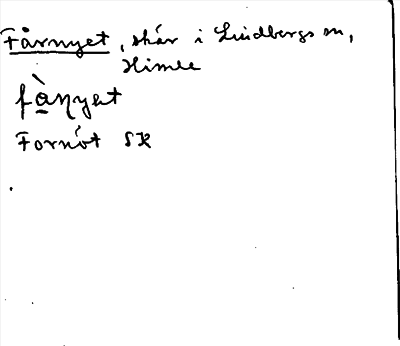 Fårnyet, skär i Lindbergs sn,
Himle
fàn̨yet
Fornöt SK